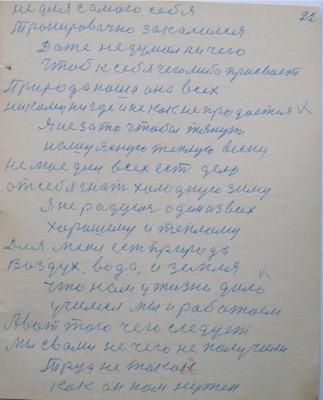 22
не для самого себя
Тренировачно закалился
Даже не думал ни чего
Чтоб к себя чего либо присвает
Природа наша она всех
никому нигде и не как не продается
Я не за то чтобы тянут
нашу ясную теплую весну
не мое для всех ест дело
от себя гнат холодную зиму
Я не радуюс один из всех
хорошему и теплому
Для меня ест природа
воздух, вода, и земля
Что нам у жизни дало
учился мы и работаем
А вот того чего следует
Мы с вами не чего не получили
Труд не такой
как он нам нужен